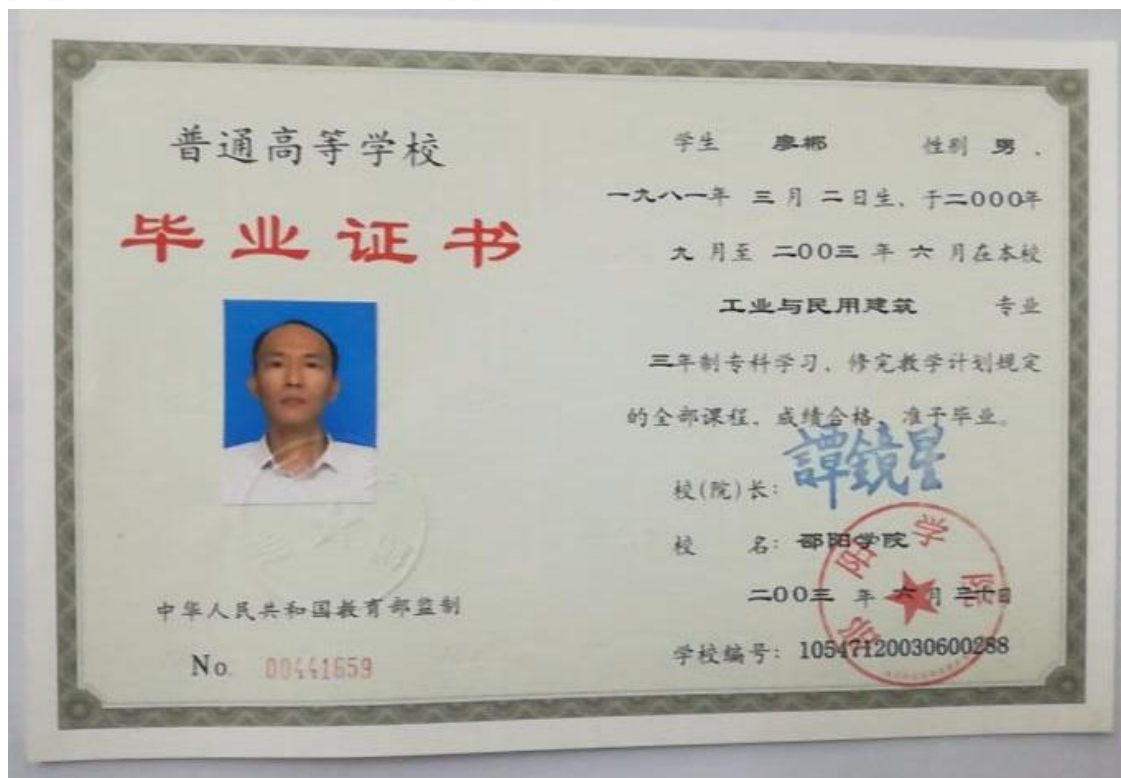 普通高等学校
毕业证书
中华人民共和国教育部监制
No. 00441659
学生 廖郴 性别 男、
一九八一年 三月 二日生、于二000年
九月至 二00三 年 六 月在本校
工业与民用建筑 专业
三年制专科学习，修完教学计划规定
的全部课程，成绩合格，准予毕业。
校(院)长： 譚鏡星
校 名： 邵阳学院
二00三 年 六月 三十日
学校编号： 10547120030600288
邵阳学院